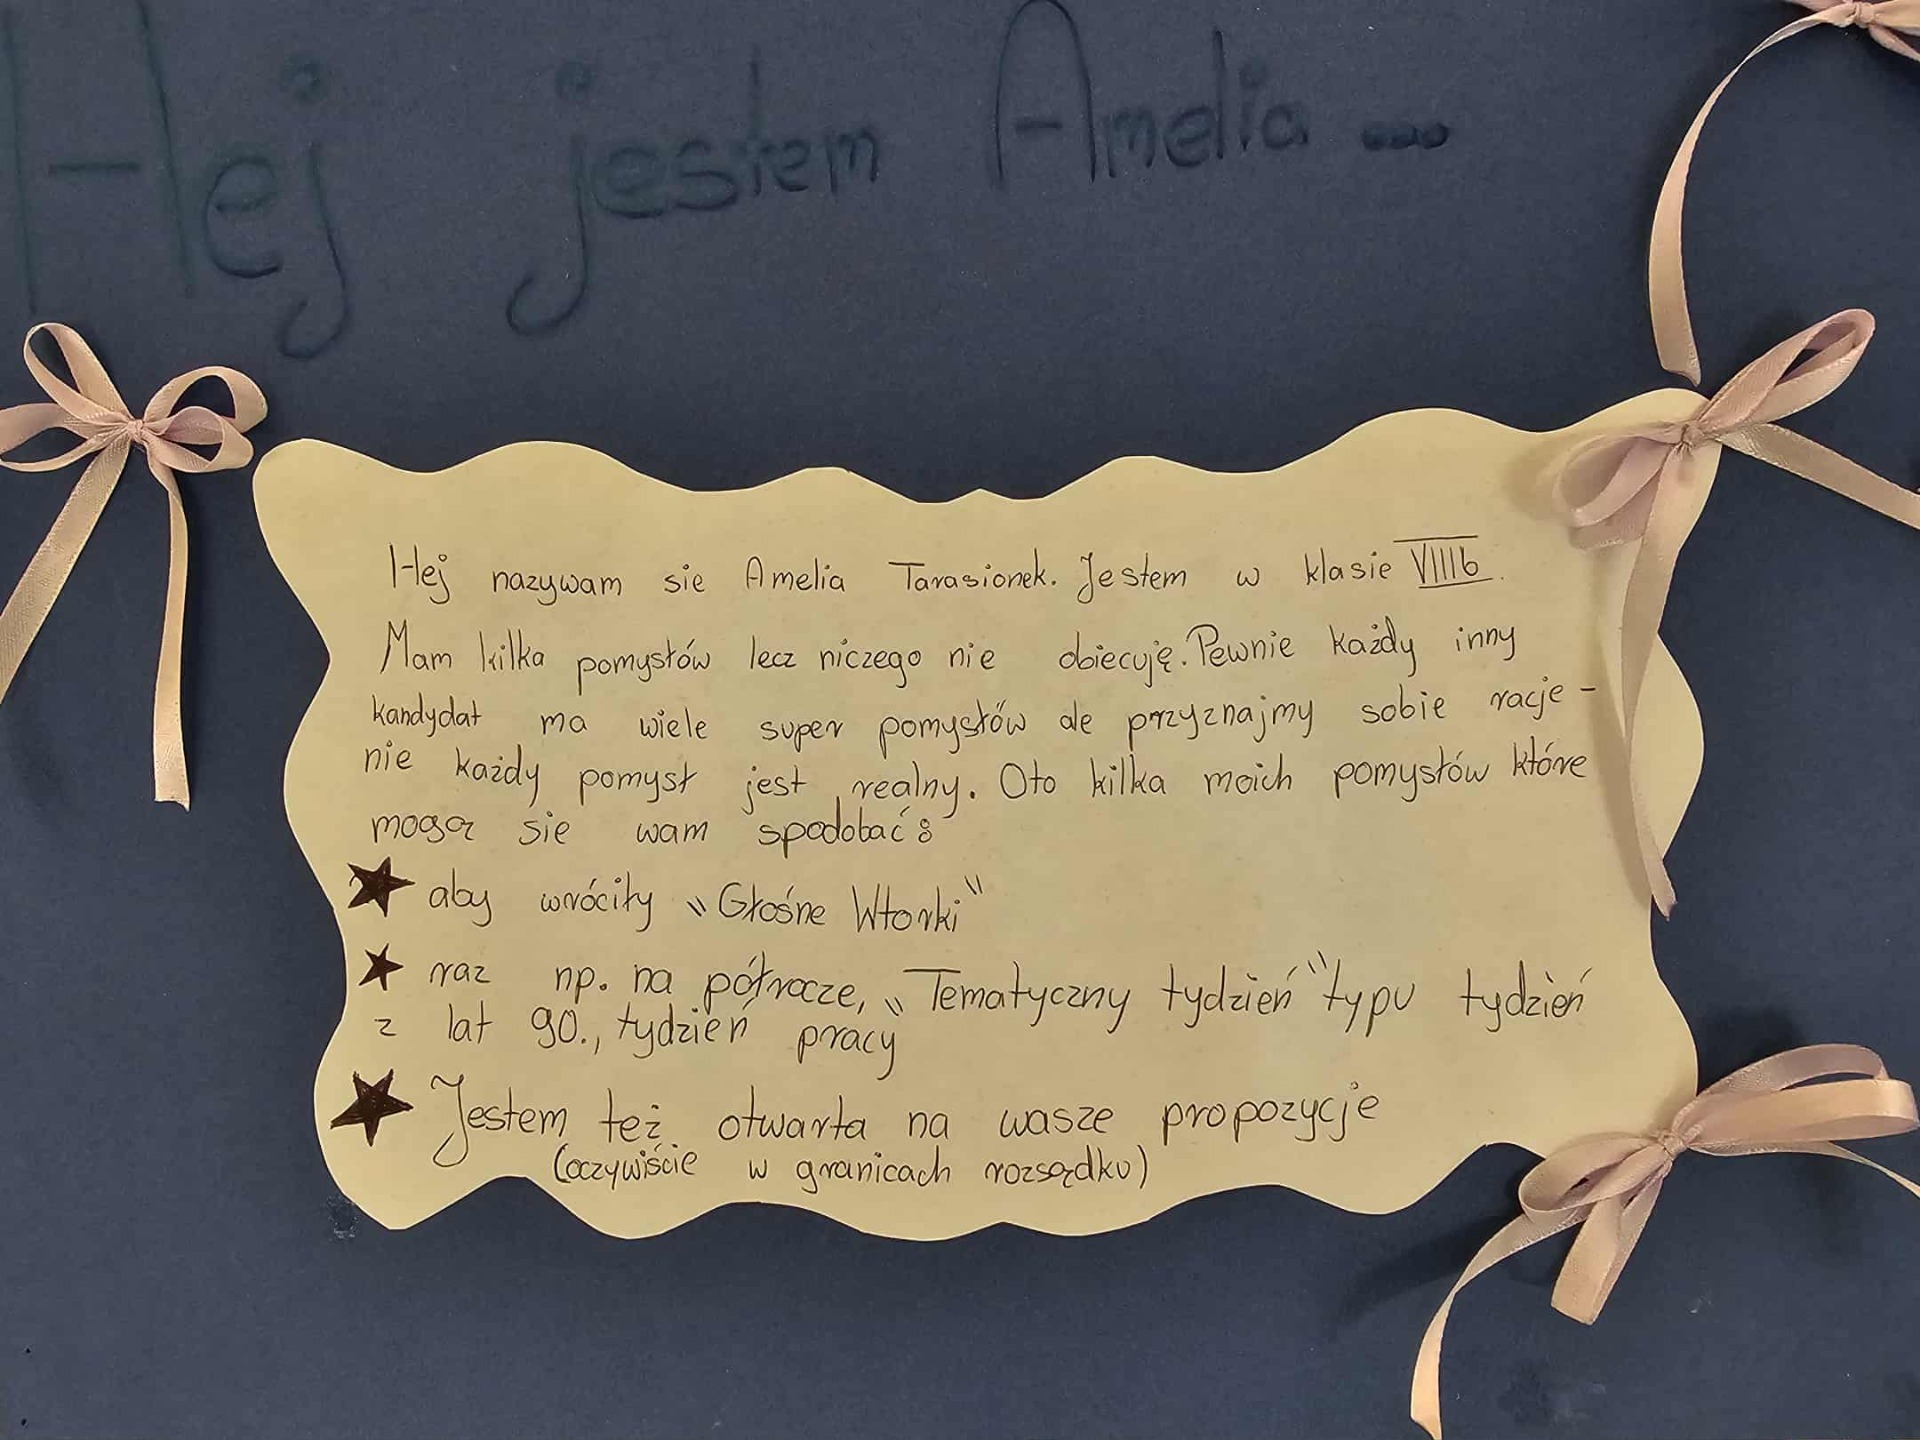 Hej jestem Amelia ...
Hej nazywam sie Amelia Tarasionek. Jestem w klasie VIIIb.
Mam kilka pomysłów lecz niczego nie obiecuję. Pewnie każdy inny
kandydat ma wiele super pomysłów ale przyznajmy sobie racje -
nie każdy pomysł jest realny. Oto kilka moich pomysłów które
mogą sie wam spodobać:
★ aby wróciły "Głośne Wtorki"
★ raz np. na półrocze, "Tematyczny tydzień" typu tydzień
z lat 90., tydzień pracy
★ Jestem też otwarta na wasze propozycje
(oczywiście w granicach rozsądku)